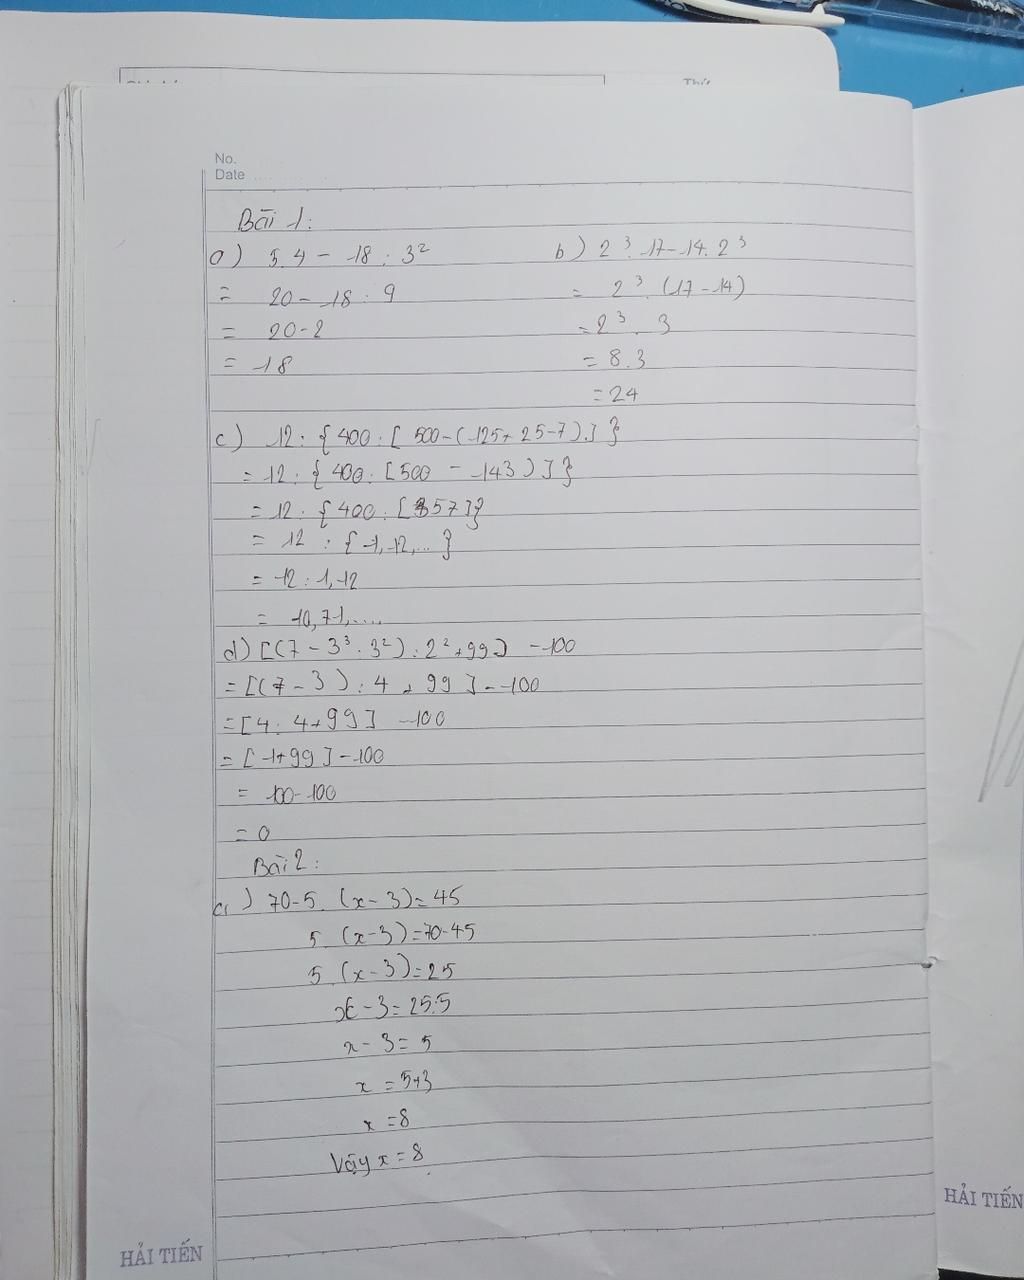 Thứ
No.
Date
Bài 1:
a) 5.4 - 18 : 3²
= 20 - 18 : 9
= 20 - 2
= 18
b) 2³.17 - 14.2³
= 2³.(17 - 14)
= 2³.3
= 8.3
= 24
c) 12 : {400 : [500 - (125 + 25 - 7).]}
= 12 : {400 : [500 - 143)]}
= 12 : {400 : [357]}
= 12 : {1,12,...}
= 12 : 1,12
= 10,71,....
d) [(7 - 3³ : 3²) : 2² + 99] - 100
= [(7 - 3) : 4 + 99] - 100
= [4 : 4 + 99] - 100
= [1 + 99] - 100
= 100 - 100
= 0
Bài 2:
a) 70 - 5.(x - 3) = 45
5.(x - 3) = 70 - 45
5.(x - 3) = 25
x - 3 = 25:5
x - 3 = 5
x = 5+3
x = 8
Vậy x = 8
HẢI TIẾN
HẢI TIẾN